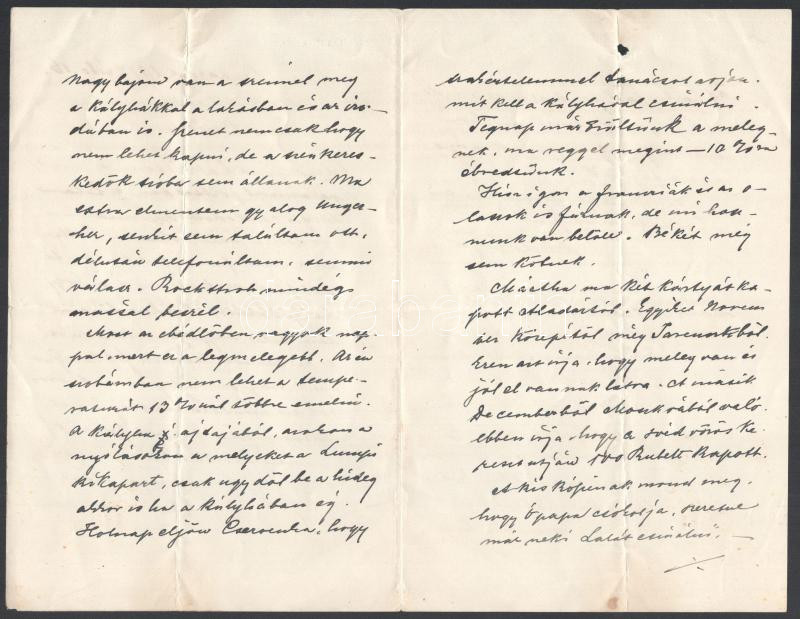 Nagy bajom van a szénnel meg
a kályhákkal a lakásban és az iro-
dában is. Szenet nem csak hogy
nem lehet kapni, de a szénkeres-
kedők szóba sem állanak. Ma
elmentem gyalog Unger-
hez, senkit sem találtam ott,
délután telefonáltam, semmi
válasz. Rockstroh mindég
mással beszél.
Most az ebédlőben vagyok nap-
pal mert ez a legmelegebb. Az én
szobámban nem lehet a tempe-
raturát 13 %nál többre emelni.
A kályha ajtajából, azokon a
nyílásokon a melyeket a Lumpi
kikapart, csak ugy dől be a hideg
akkor is ha a kályhában ég.
Holnap eljön Czervenka, hogy
szakértelemmel tanácsot adjon.
mit kell a kályhával csinálni.
Tegnap már örültünk a meleg-
nek, ma reggel megint – 10 %ra
ébredtünk.
Hiszen igaz a francziák és az o-
laszok is fáznak, de mi hasz-
nunk van belőle. Békét még
sem kötnek.
Mártha ma két kártyát ka-
pott Aladártól. Egyiket Novem
ber közepétől még
Ezen azt írja, hogy meleg van és
jól el vannak látva. A másik
Decemberből Moszkvából való.
ebben írja, hogy a svéd vörös ke-
reszt utján 100 Rubelt kapott.
A kis Köpinak mond meg,
hogy Ópapa csókolja, szeretne
már neki Lalát csinálni. –